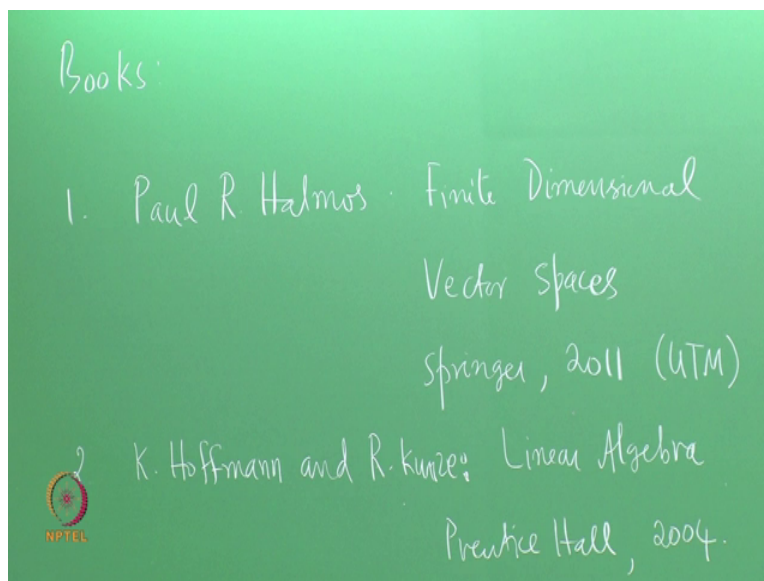 Books:
1. Paul R. Halmos. Finite Dimensional
Vector Spaces
Springer, 2011 (UTM)
2 K. Hoffmann and R. Kunze: Linear Algebra
NPTEL
Prentice Hall, 2004.